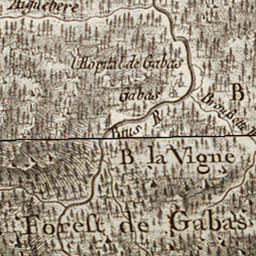 Aiguebere
l'Hopital de Gabas
Gabas
B
Bius R
B la Vigne
Forest de Gabas